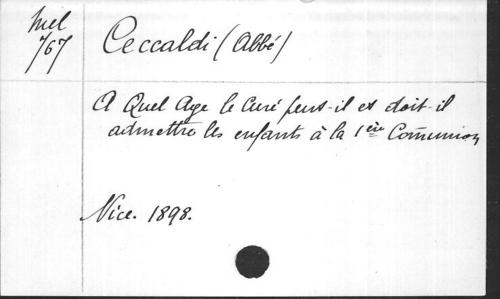 Niel
767
Ceccaldi (Abbé)
A Quel Age le Curé peut-il et doit-il
admettre les enfants à la 1ère Com̃union
Nice. 1898.